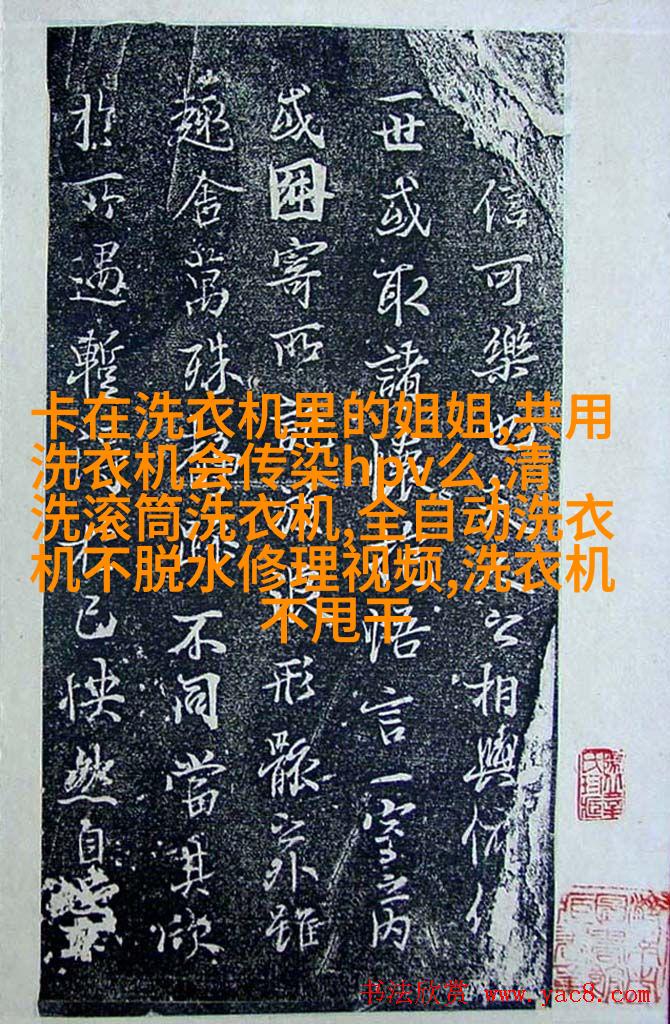 信可樂也夫人之相與俯仰
一世或取諸懷抱悟言一室之内
或因寄所託放浪形骸之外雖
趣舍萬殊靜躁不同當其欣
於所遇暫得於己怏然自
卡在洗衣机里的姐姐,共用
洗衣机会传染hpv么,清
洗滚筒洗衣机,全自动洗衣
机不脱水修理视频,洗衣机
不甩干
书法欣赏 www.yac8.com